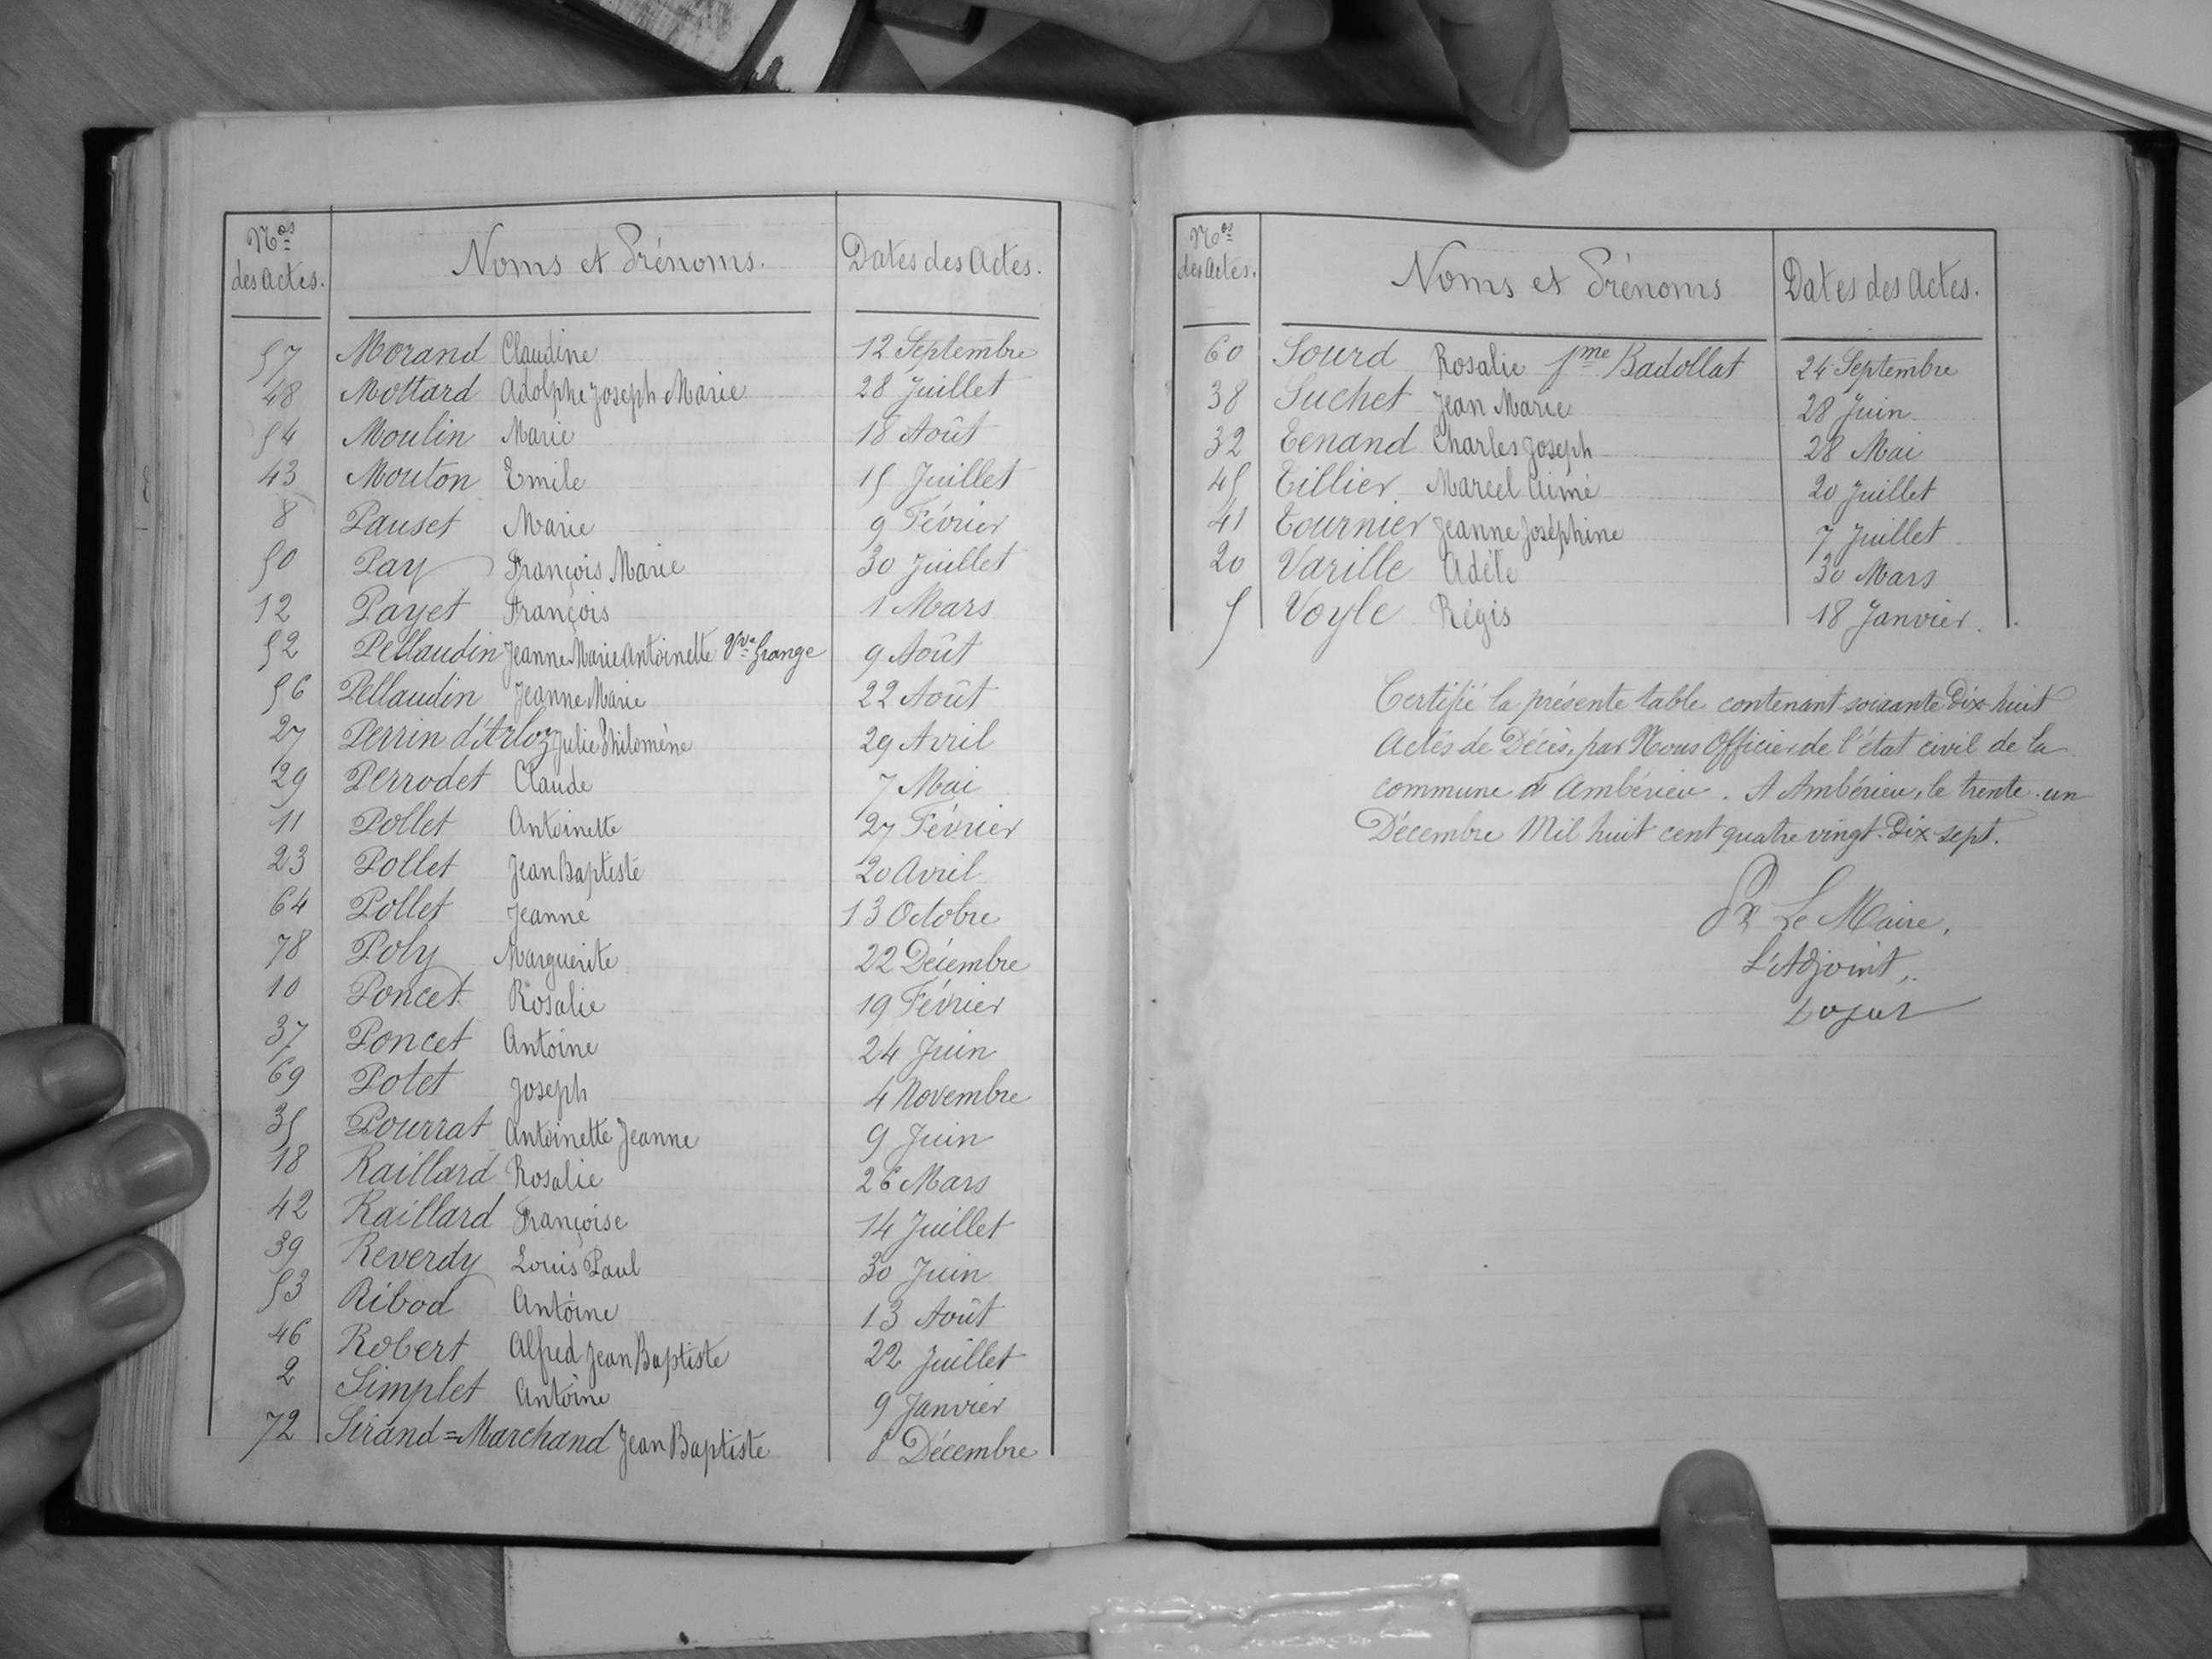 Nos des Actes. Noms et Prénoms. Dates des Actes.
57 Morand Claudine 12 Septembre
48 Mottard Adolphe Joseph Marie 28 Juillet
54 Moulin Marie 18 Août
43 Mouton Emile 15 Juillet
8 Pauset Marie 9 Février
50 Pay François Marie 30 Juillet
12 Payet François 1 Mars
52 Pellaudin Jeanne Marie Antoinette Vve Grange 9 Août
56 Pellaudin Jeanne Marie 22 Août
27 Perrin d'Arloz Julie Philomène 29 Avril
29 Perrodet Claude 7 Mai
11 Pollet Antoinette 27 Février
23 Pollet Jean Baptiste 20 Avril
64 Pollet Jeanne 13 Octobre
78 Poly Marguerite 22 Décembre
10 Poncet Rosalie 19 Février
37 Poncet Antoine 24 Juin
69 Potet Joseph 4 Novembre
35 Pourrat Antoinette Jeanne 9 Juin
18 Raillard Rosalie 26 Mars
42 Raillard Françoise 14 Juillet
39 Reverdy Louis Paul 30 Juin
53 Ribod Antoine 13 Août
46 Robert Alfred Jean Baptiste 22 Juillet
2 Simplet Antoine 9 Janvier
72 Sirand=Marchand Jean Baptiste 8 Décembre
Nos des Actes. Noms et Prénoms Dates des Actes.
60 Sourd Rosalie fme Badollat 24 Septembre
38 Suchet Jean Marie 28 Juin
32 Tenand Charles Joseph 28 Mai
45 Tillier Marcel Aimé 20 Juillet
41 Tournier Jeanne Joséphine 7 Juillet
20 Varille Adèle 30 Mars
5 Voyle Régis 18 Janvier.
Certifié la présente table contenant soixante Dix-huit
Actes de Décès, par Nous Officier de l'état civil de la
commune d'Ambérieu. A Ambérieu, le trente-un
Décembre Mil huit cent quatre vingt-Dix-sept.
Pr Le Maire,
L'Adjoint,